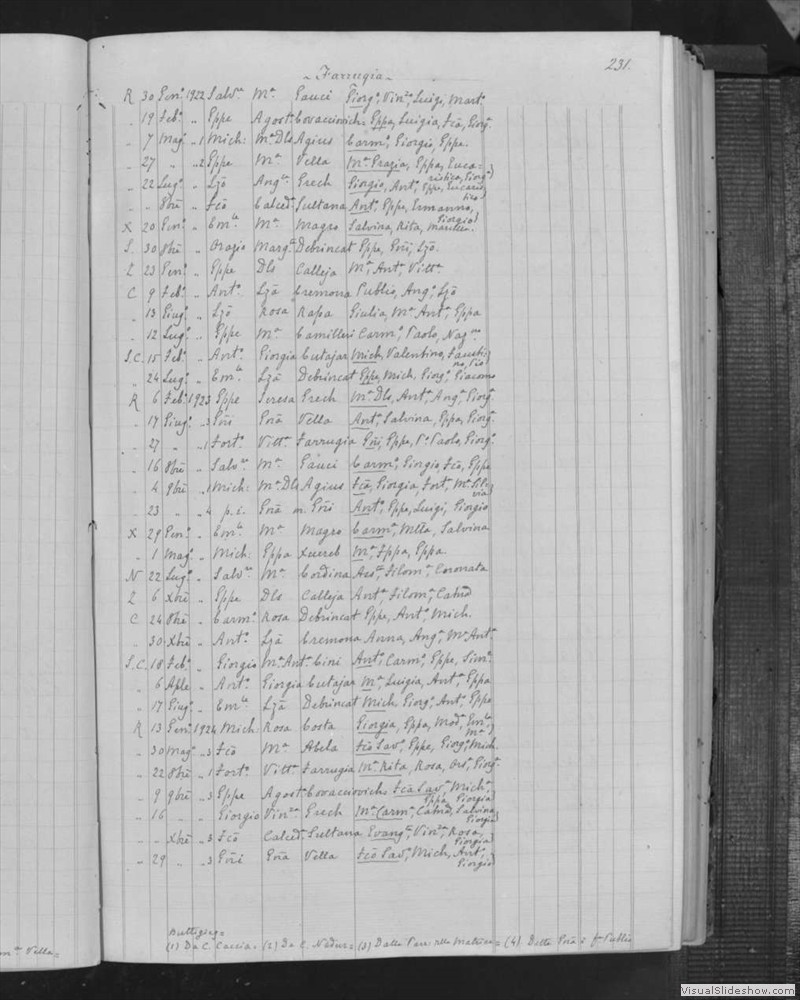 231.
Farrugia
R 30 Genº 1922 Salvre Mª Gauci Giorgº, Vinzº, Luigi, Martº
" 19 Febº " Gppe Agostª Covacciovich Gppa, Luigia, Fcā, Giorgª
" 7 Magº "1 Mich: Mª Dls Agius Carmº, Giorgio, Gppe
" 27 " "2 Gppe Mª Vella Mª Grazia, Gppa, Euca=
ristica, Giorgª
" 22 Lugº " Ljō Angla Grech Giorgio, Antº, Gppe, Eucaris
tico
" " 8bre " Fcō Calcedª Sultana Antº, Gppe, Ermanno,
Giorgio
X 20 Genº " Emle Mª Magro Salvina, Rita,
S. 30 8bre " Orazio Margta Debrincat Gppe, Gñi, Ljō.
Z 23 Genº " Gppe Dls Calleja Mª, Antª, Vittª
C 9 Febº " Antº Ljā Cremona Publio, Angº, Ljō
" 13 Giugº " Ljō Rosa Rapa Giulia, Mª Antª, Gppa
" 12 Lugº " Gppe Mª Camilleri Carmº, Paolo,
S.C. 15 Febº " Antº Giorgia Cutajar Mich, Valentino, Fausti=
no, Pio
" 24 Lugº " Emle Ljā Debrincat Gppe, Mich, Giorgº, Giacomo
R 6 Febº 1923 Gppe Teresa Grech Mª Dls, Antª, Angª, Giorgª
" 17 Giugº "3 Gñi Gñā Vella Antª, Salvina, Gppa, Giorgª
" 27 " "1 Fortº Vittª Farrugia Gñi, Gppe, Pº Paolo, Giorgº
" 16 8bre " Salvre Mª Gauci Carmº, Giorgio, Fcō, Gppe
" 4 9bre "1 Mich: Mª Dls Agius Fcā, Giorgia, Fortª, Mª
" 23 " "4 p.i. Gñā m. Gñi Antº, Gppe, Luigi, Giorgio
X 29 Genº " Emle Mª Magro Carmª, Mlta, Salvina
" 1 Magº " Mich: Gppa Xuereb Mª, Gppa
N 22 Lugº " Salvre Mª Cordina Filomª, Coronata
Z 6 Xbre " Gppe Dls Calleja Antª, Filomª,
C 24 8bre " Carmº Rosa Debrincat Gppe, Antº, Mich.
" 30 Xbre " Antº Ljā Cremona Anna, Angª, Mª Antª
S.C. 18 Febº " Giorgio Mª Antª Cini Antº, Carmº, Gppe,
" 6 Aple " Antº Giorgia Cutajar Mª, Luigia, Antª, Gppa
" 17 Giugº " Emle Ljā Debrincat Mich, Giorgº, Antº, Gppe
R 13 Genº 1924 Mich: Rosa Costa Giorgia, Gppa,
" 30 Magº "3 Fcō Mª Abela Fcō Savº, Gppe, Giorgº, Mich.
" 22 8bre "1 Fortº Vittª Farrugia Mª Rita, Rosa, Giorgª
" 9 9bre "3 Gppe Agostª Covacciovich Fcā Savª, Michª,
Gppa, Giorgia
" 16 " " Giorgio Vinza Grech Mª Carmª, Salvina,
Giorgia
" " Xbre "3 Fcō Calcedª Sultana Evangª, Vinzª, Rosa,
Giorgia
" 29 " "3 Gñi Gñā Vella Fcō Savº, Mich, Antº,
Giorgio
Buttigieg=
(1) Da C. Caccia= (2) Da C. Nadur= (3) Dalla Parr. alla Matrice= (4) Publio
Vella=
VisualSlideshow.com